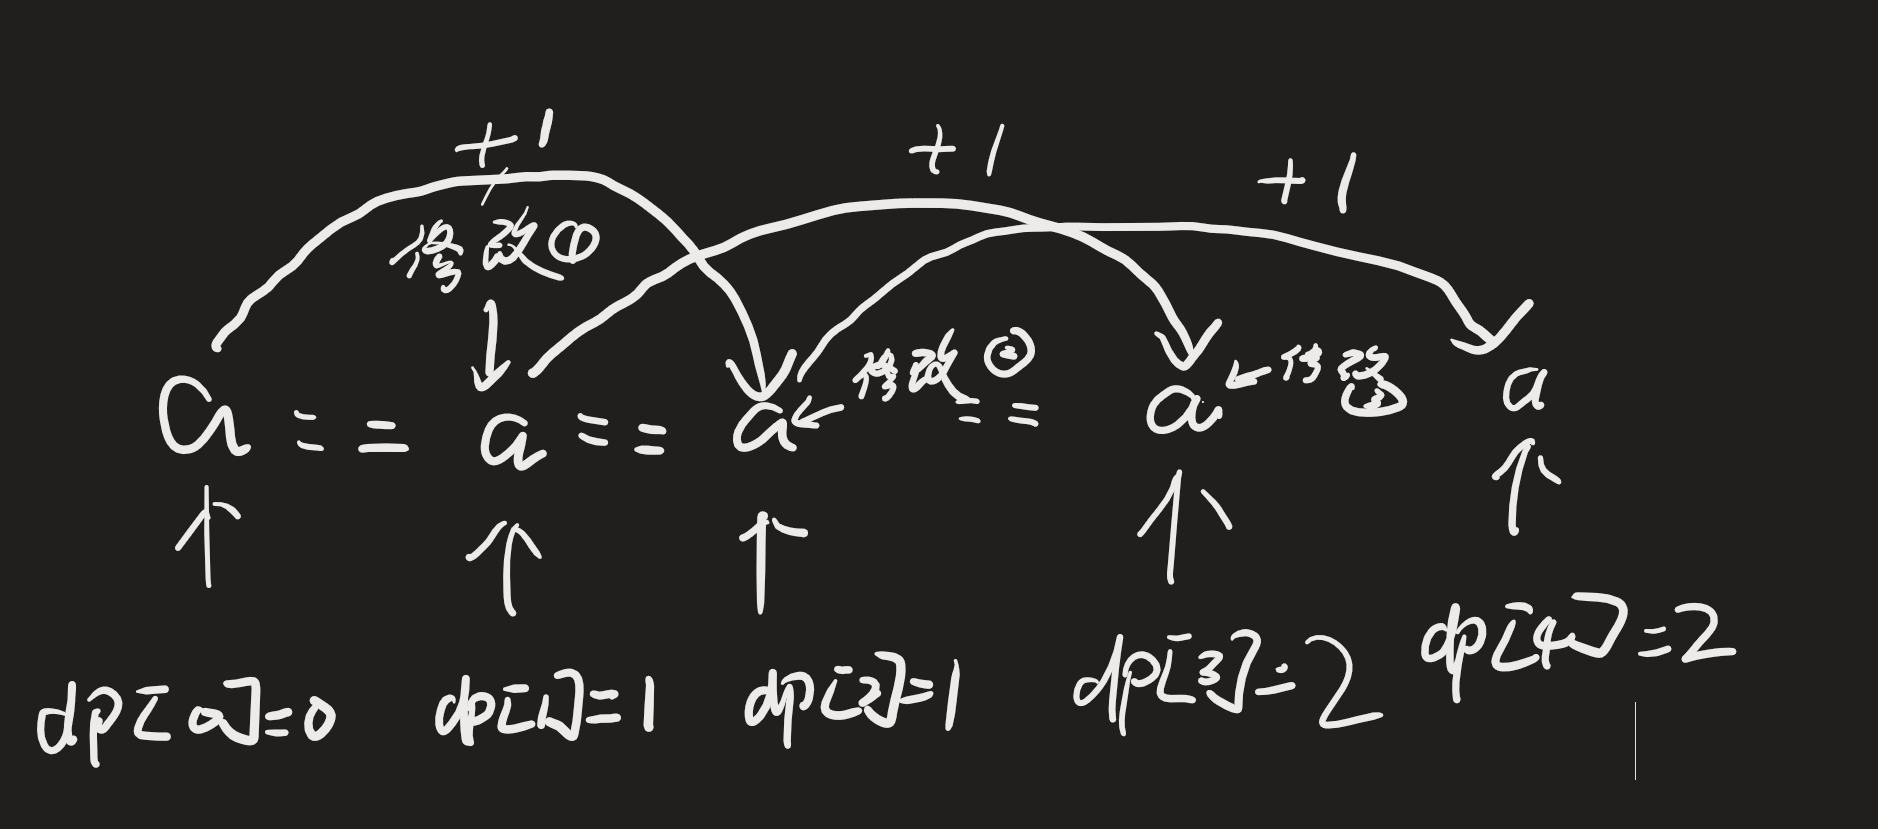 +1 +1 +1
修改①
修改② 修改③
a == a == a == a a
dp[0]=0 dp[1]=1 dp[2]=1 dp[3]=2 dp[4]=2